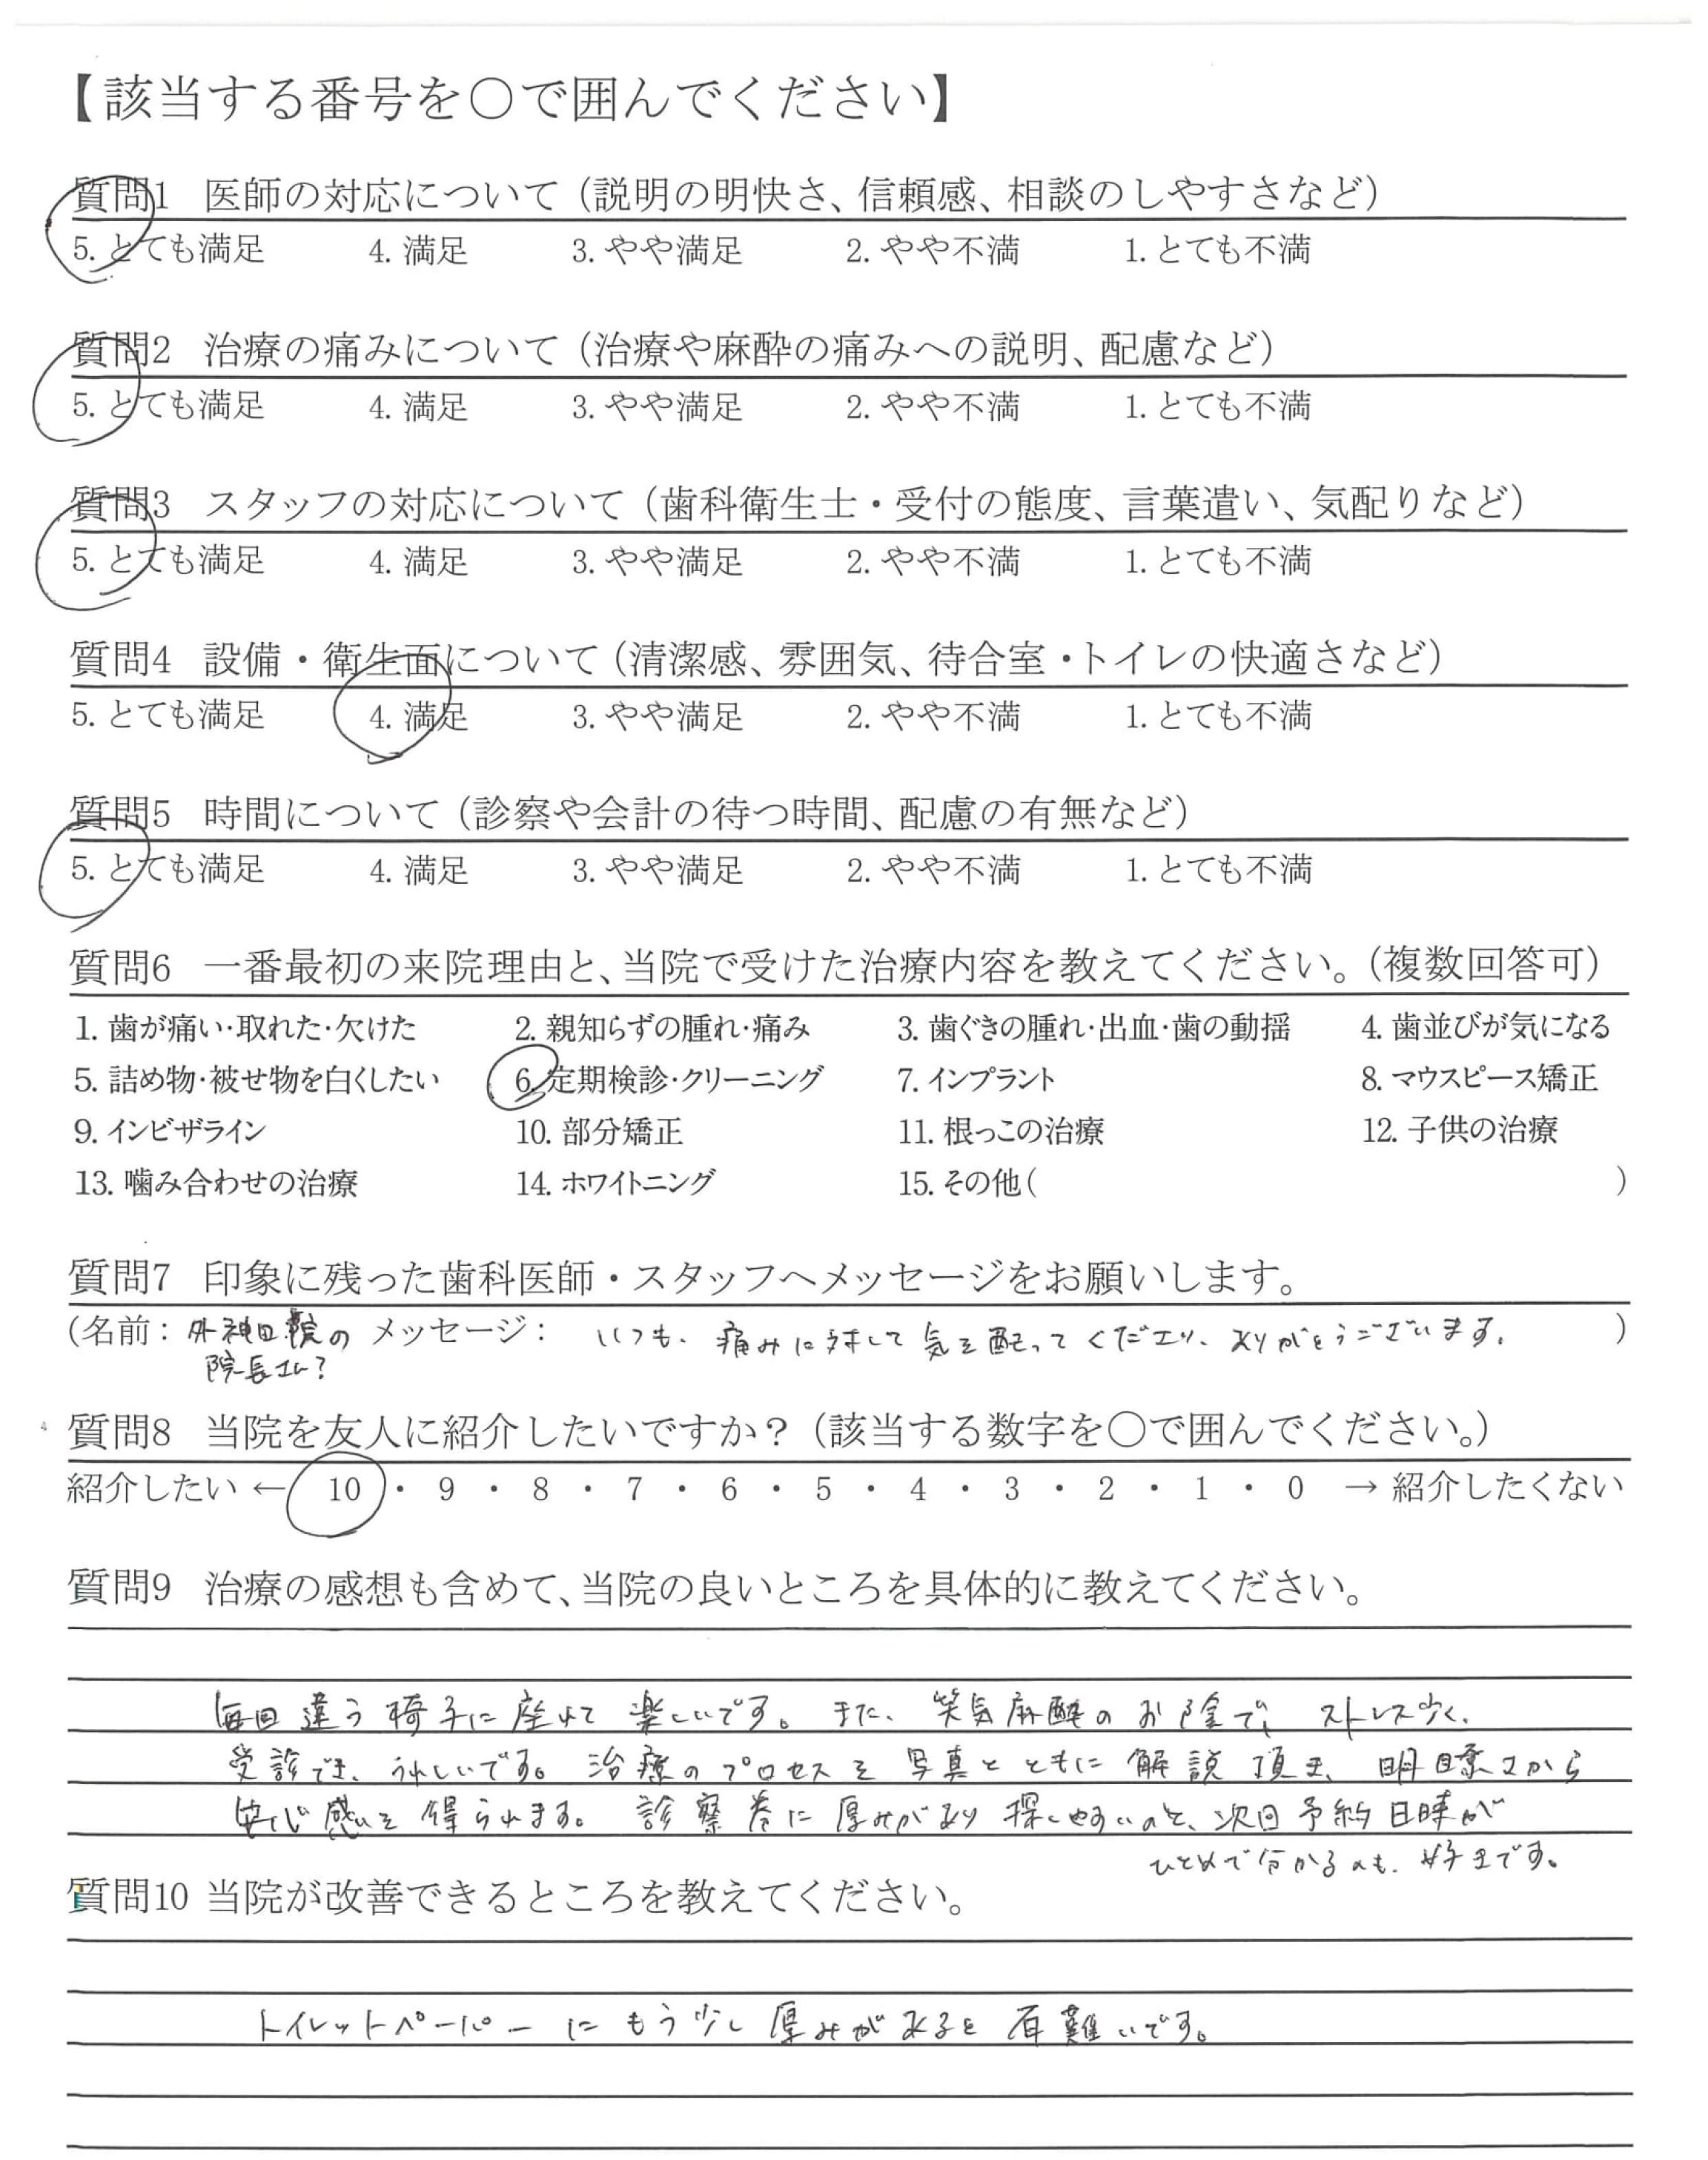 【該当する番号を○で囲んでください】
質問1 医師の対応について（説明の明快さ、信頼感、相談のしやすさなど）
5. とても満足 4. 満足 3. やや満足 2. やや不満 1. とても不満
質問2 治療の痛みについて（治療や麻酔の痛みへの説明、配慮など）
5. とても満足 4. 満足 3. やや満足 2. やや不満 1. とても不満
質問3 スタッフの対応について（歯科衛生士・受付の態度、言葉遣い、気配りなど）
5. とても満足 4. 満足 3. やや満足 2. やや不満 1. とても不満
質問4 設備・衛生面について（清潔感、雰囲気、待合室・トイレの快適さなど）
5. とても満足 4. 満足 3. やや満足 2. やや不満 1. とても不満
質問5 時間について（診察や会計の待つ時間、配慮の有無など）
5. とても満足 4. 満足 3. やや満足 2. やや不満 1. とても不満
質問6 一番最初の来院理由と、当院で受けた治療内容を教えてください。（複数回答可）
1. 歯が痛い・取れた・欠けた 2. 親知らずの腫れ・痛み 3. 歯ぐきの腫れ・出血・歯の動揺 4. 歯並びが気になる
5. 詰め物・被せ物を白くしたい 6. 定期検診・クリーニング 7. インプラント 8. マウスピース矯正
9. インビザライン 10. 部分矯正 11. 根っこの治療 12. 子供の治療
13. 噛み合わせの治療 14. ホワイトニング 15. その他（ ）
質問7 印象に残った歯科医師・スタッフへメッセージをお願いします。
（名前： 外神田院の メッセージ： いつも、痛みに対して気を配ってくださり、ありがとうございます。 ）
院長さん？
質問8 当院を友人に紹介したいですか？（該当する数字を○で囲んでください。）
紹介したい ← 10 ・ 9 ・ 8 ・ 7 ・ 6 ・ 5 ・ 4 ・ 3 ・ 2 ・ 1 ・ 0 → 紹介したくない
質問9 治療の感想も含めて、当院の良いところを具体的に教えてください。
毎回違う椅子に座れて楽しいです。また、笑気麻酔のお陰で、ストレス少く、
受診でき、うれしいです。治療のプロセスを写真とともに解説頂き、明瞭さから
安心感を得られます。診察券に厚みがあり探しやすいのと、次回予約日時が
ひとめで分かるのも、好きです。
質問10 当院が改善できるところを教えてください。
トイレットペーパーにもう少し厚みがあると有難いです。